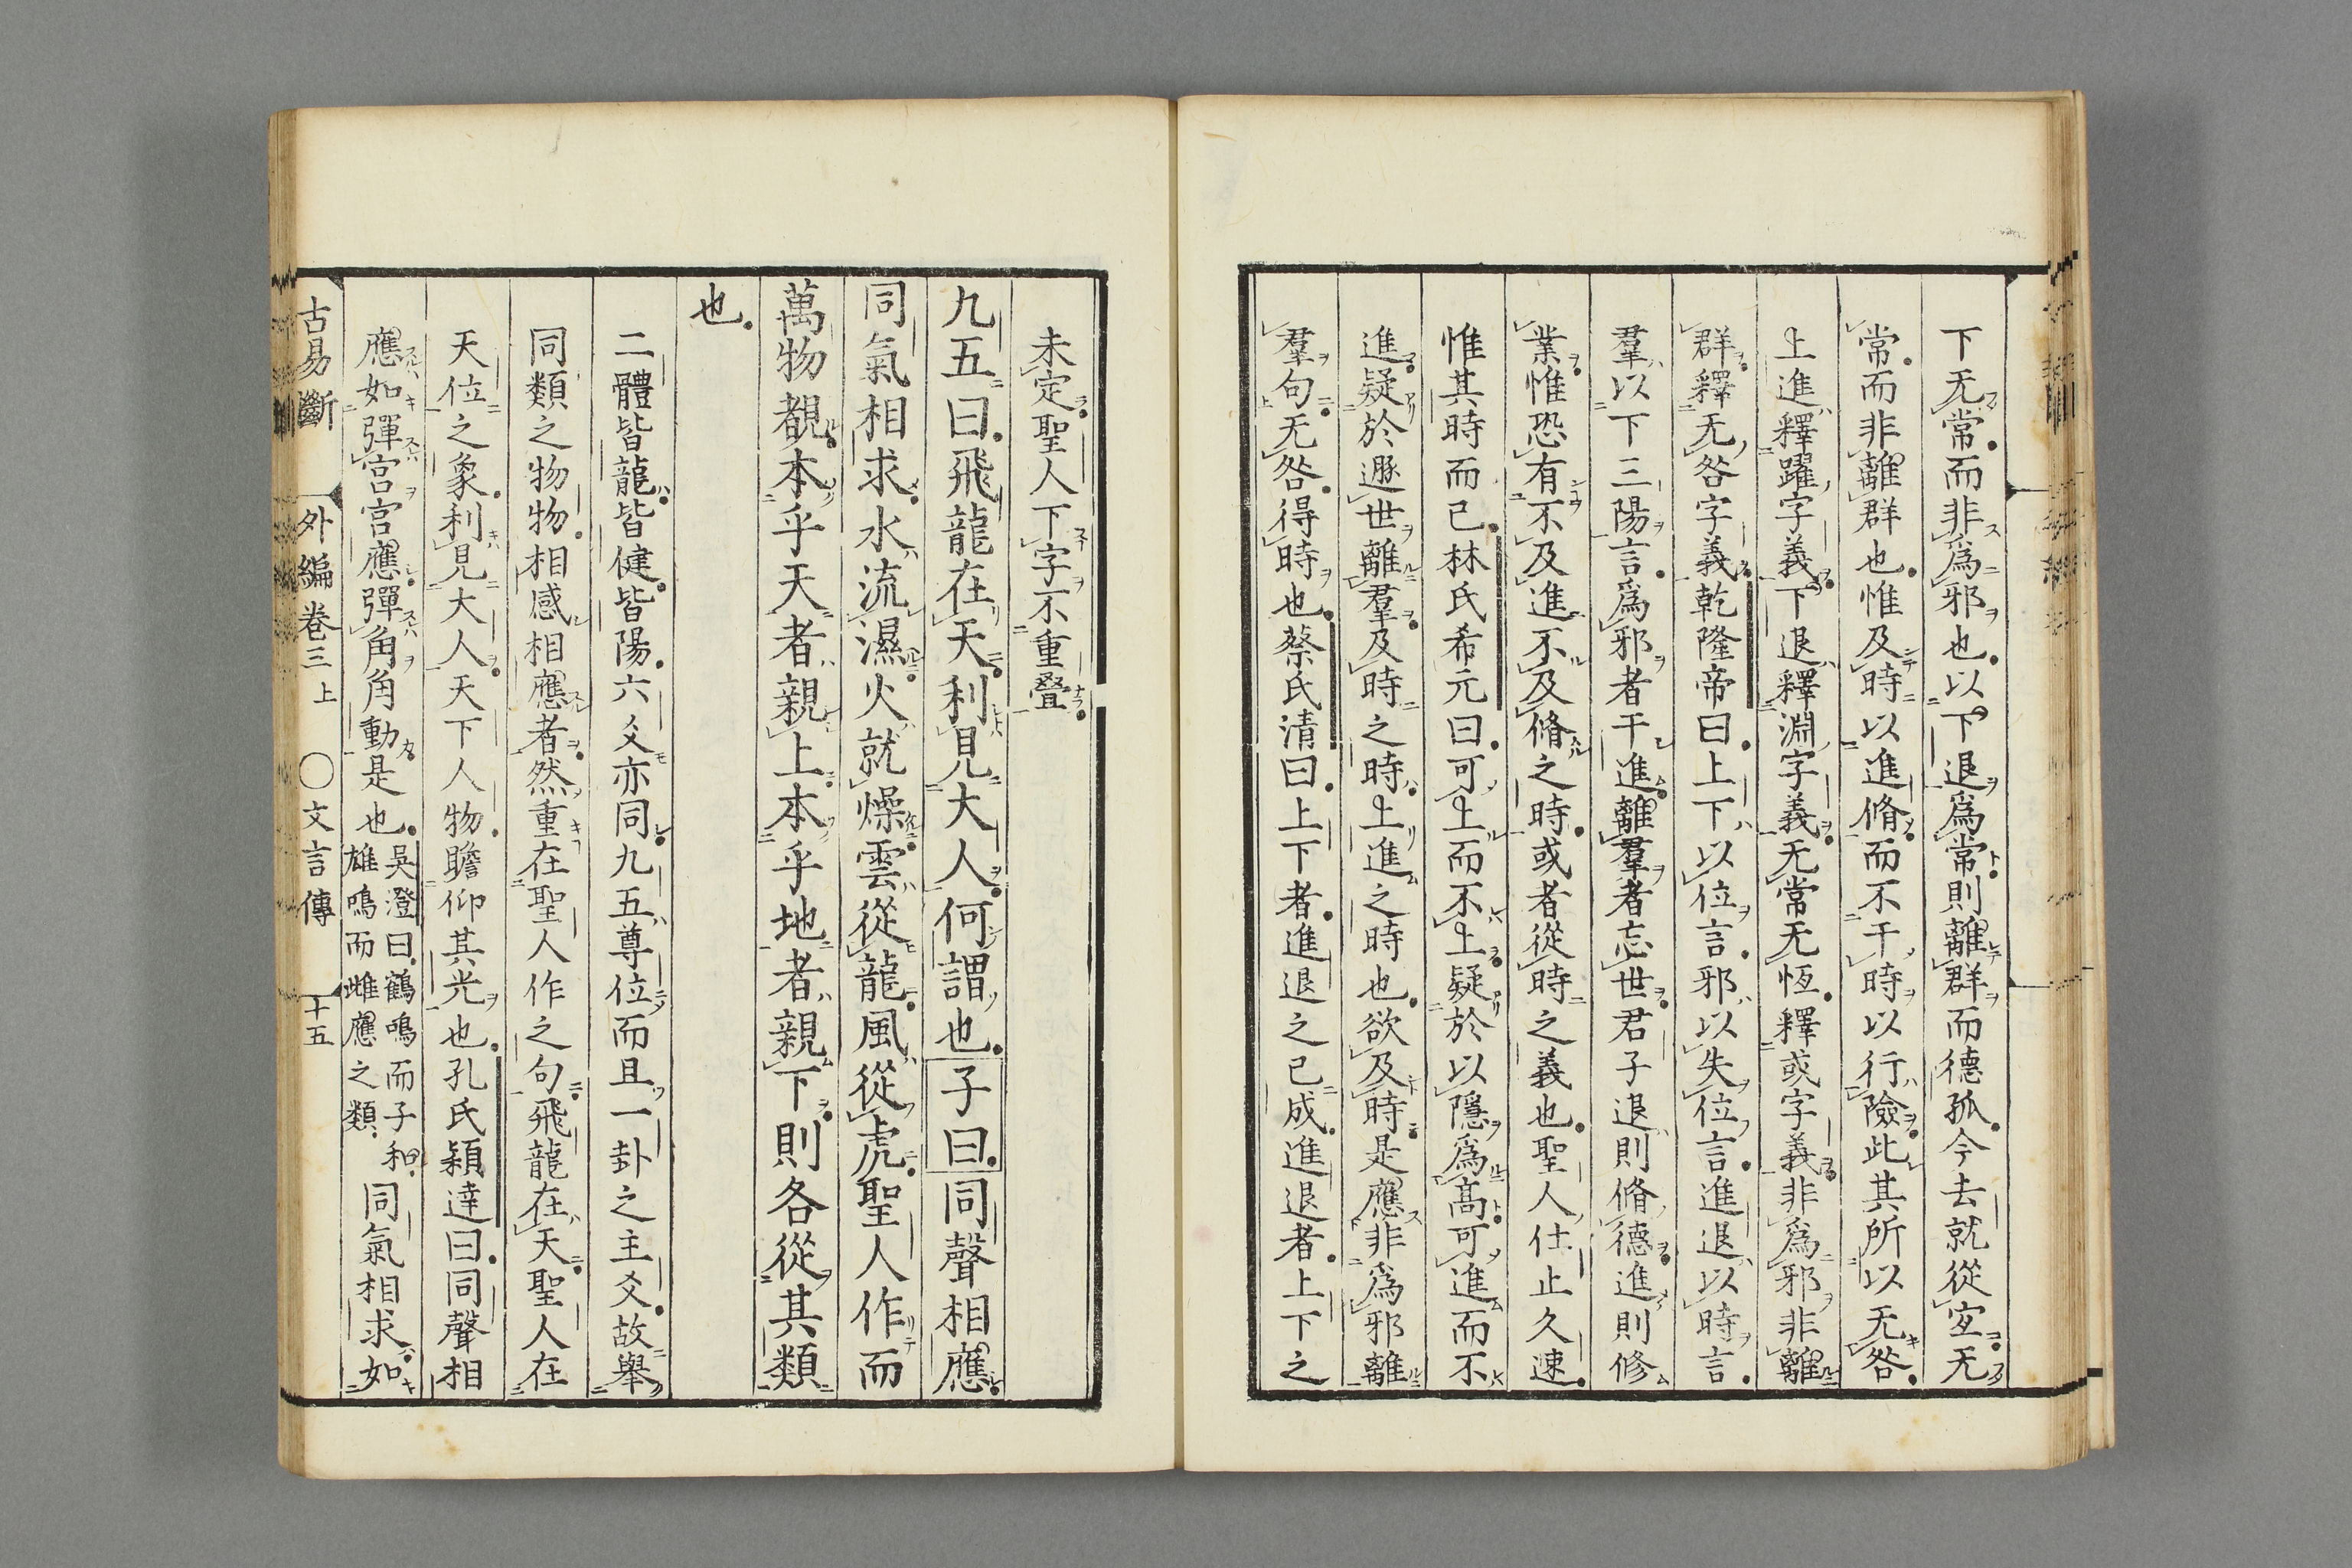 下无常而非爲邪也以下退爲常則離群而德孤今去就從宐无
常而非離群也惟及時以進脩而不干時以行險此其所以无咎
上進釋躍字義下退釋淵字義无常无恆釋或字義非爲邪非離
群釋无咎字義乾隆帝曰上下以位言邪以失位言進退以時言
羣以下三陽言爲邪者干進離羣者忘世君子退則脩德進則修
業惟恐有不及進不及脩之時或者從時之義也聖人仕止久速
惟其時而已林氏希元曰可上而不上疑於以隱爲高可進而不
進疑於遯世離羣及時之時上進之時也欲及時是應非爲邪離
羣句无咎得時也蔡氏清曰上下者進退之已成進退者上下之
未定聖人下字不重疊
九五曰飛龍在天利見大人何謂也子曰同聲相應
同氣相求水流濕火就燥雲從龍風從虎聖人作而
萬物覩本乎天者親上本乎地者親下則各從其類
也
二體皆龍皆健皆陽六爻亦同九五尊位而且一卦之主爻故舉
同類之物物相感相應者然重在聖人作之句飛龍在天聖人在
天位之象利見大人天下人物瞻仰其光也孔氏穎達曰同聲相
應如彈宮宮應彈角角動是也吳澄曰鶴鳴而子和雄鳴而雌應之類同氣相求如
古易斷 外編卷三上 ○文言傳 十五